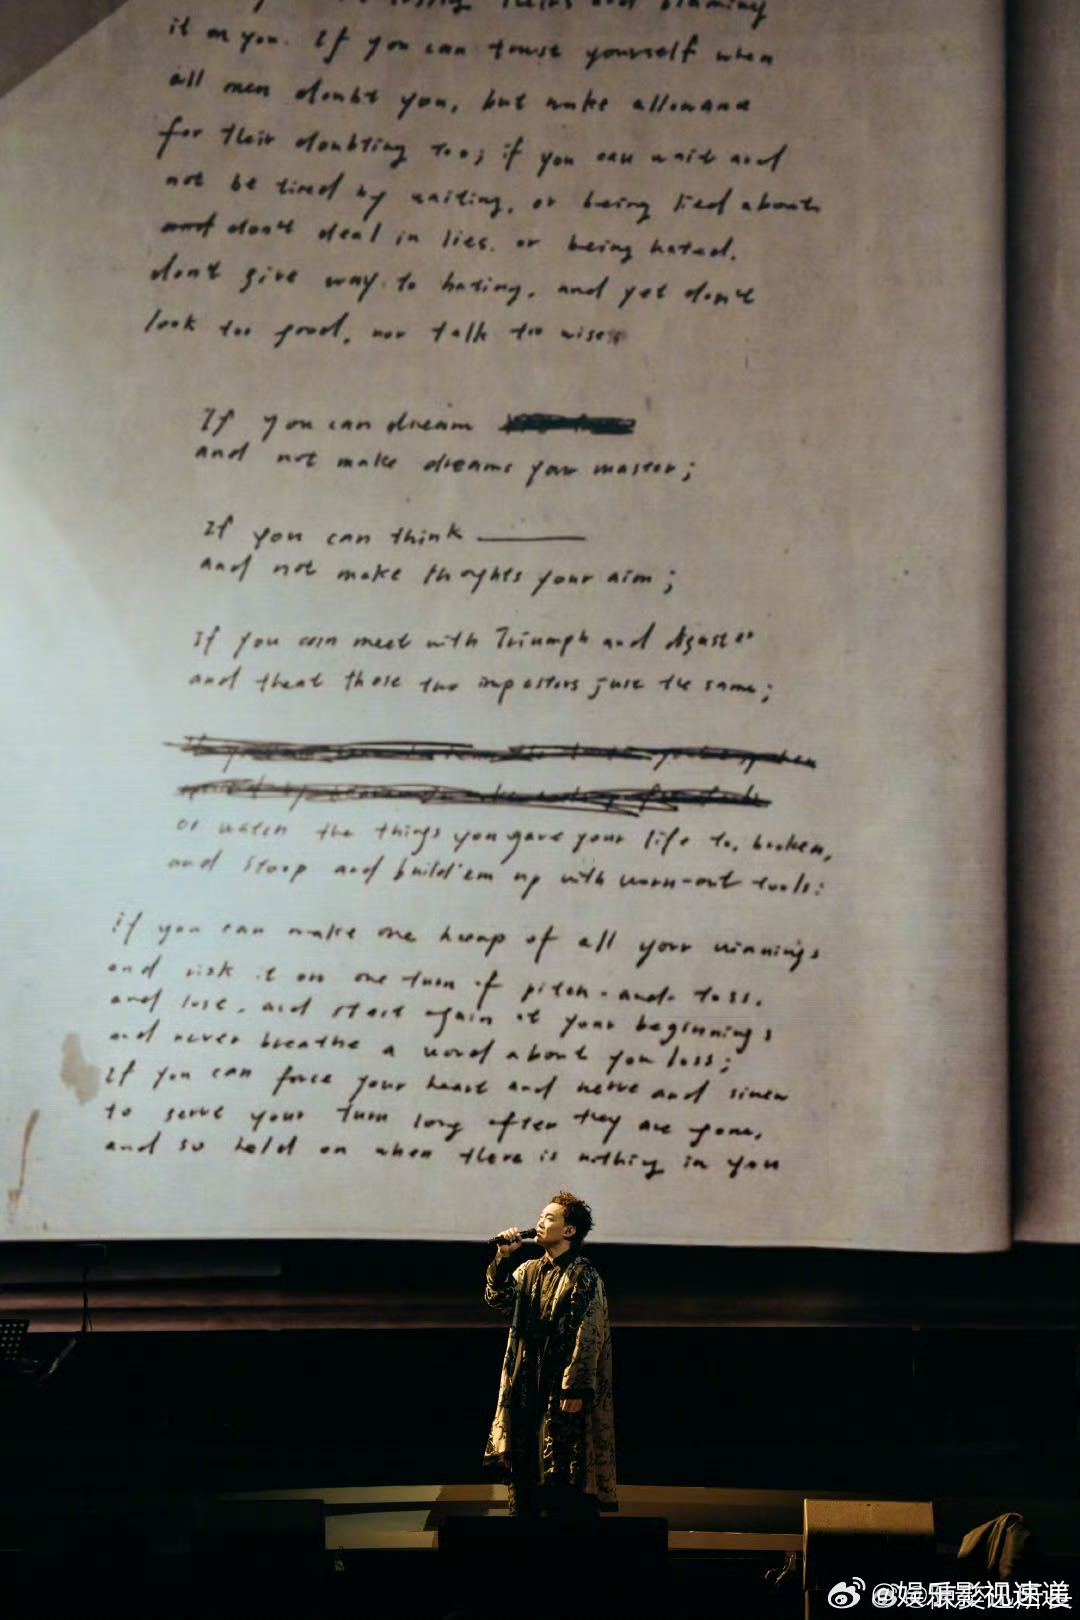 losing theirs and blaming
it on you. If you can trust yourself when
all men doubt you, but make allowance
for their doubting too; if you can wait and
not be tired by waiting, or being lied about
and don't deal in lies. or being hated.
don't give way to hating, and yet don't
look too good, nor talk too wise
If you can dream
and not make dreams your master;
If you can think
and not make thoghts your aim;
If you can meet with Triumph and
and treat those two impostors just the same;
or watch the things you gave your life to, broken,
and stoop and build'em up with worn-out tools:
if you can make one heap of all your winnings
and risk it on one turn of pitch-and-toss.
and lose, and start again at your beginnings
and never breathe a word about you loss;
If you can force your heart and nerve and sinew
to serve your turn long after they are gone,
and so hold on when there is nothing in you
@娱乐影视速递